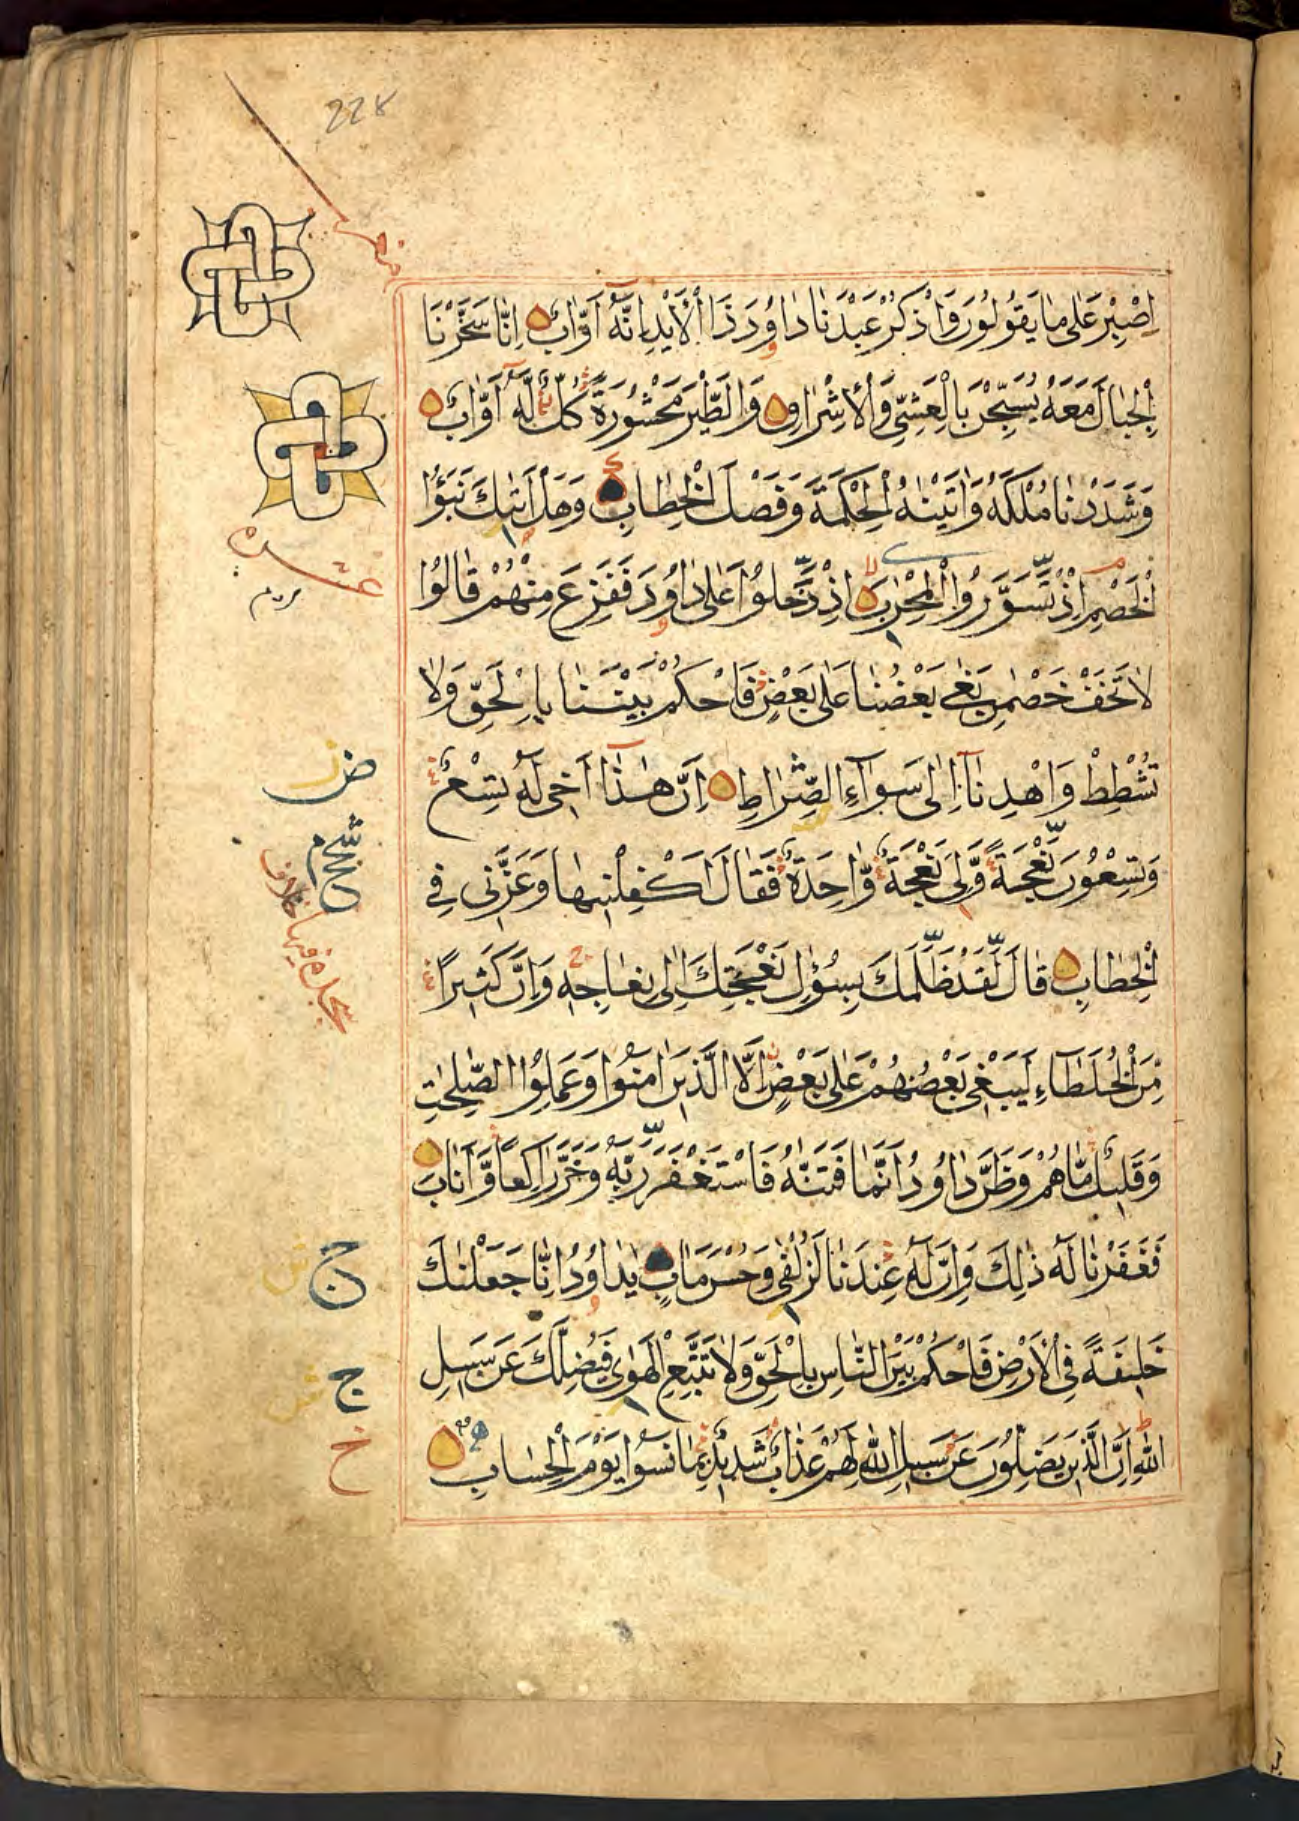 228
اِصْبِرْ عَلٰى مَا يَقُولُونَ وَاذْكُرْ عَبْدَنَا دَاوُدَ ذَا الْاَيْدِ اِنَّهٗ اَوَّابٌ اِنَّا سَخَّرْنَا
الْجِبَالَ مَعَهُ يُسَبِّحْنَ بِالْعَشِيِّ وَالْاِشْرَاقِ وَالطَّيْرَ مَحْشُورَةً كُلٌّ لَهٗ اَوَّابٌ
وَشَدَدْنَا مُلْكَهُ وَاٰتَيْنٰهُ الْحِكْمَةَ وَفَصْلَ الْخِطَابِ وَهَلْ اَتٰىكَ نَبَؤُا
الْخَصْمِ اِذْ تَسَوَّرُوا الْمِحْرَابَ اِذْ دَّخَلُوا عَلٰى دَاوُدَ فَفَزِعَ مِنْهُمْ قَالُوا
لَا تَخَفْ خَصْمٰنِ بَغٰى بَعْضُنَا عَلٰى بَعْضٍ فَاحْكُمْ بَيْنَنَا بِالْحَقِّ وَلَا
تُشْطِطْ وَاهْدِنَآ اِلٰى سَوَآءِ الصِّرَاطِ اِنَّ هٰذَآ اَخِى لَهٗ تِسْعٌ
وَتِسْعُونَ نَعْجَةً وَّلِىَ نَعْجَةٌ وَّاحِدَةٌ فَقَالَ اَكْفِلْنِيهَا وَعَزَّنِى فِى
الْخِطَابِ قَالَ لَقَدْ ظَّلَمَكَ بِسُؤَالِ نَعْجَتِكَ اِلٰى نِعَاجِهٖ وَاِنَّ كَثِيرًا
مِّنَ الْخُلَطَآءِ لَيَبْغِى بَعْضُهُمْ عَلٰى بَعْضٍ اِلَّا الَّذِينَ اٰمَنُوا وَعَمِلُوا الصّٰلِحٰتِ
وَقَلِيلٌ مَّا هُمْ وَظَنَّ دَاوُدُ اَنَّمَا فَتَنّٰهُ فَاسْتَغْفَرَ رَّبَّهٗ وَخَرَّ رَاكِعًا وَّاَنَابَ
فَغَفَرْنَا لَهٗ ذٰلِكَ وَاِنَّ لَهٗ عِنْدَنَا لَزُلْفٰى وَحُسْنَ مَاٰبٍ يٰدَاوُدُ اِنَّا جَعَلْنٰكَ
خَلِيفَةً فِى الْاَرْضِ فَاحْكُمْ بَيْنَ النَّاسِ بِالْحَقِّ وَلَا تَتَّبِعِ الْهَوٰى فَيُضِلَّكَ عَنْ سَبِيلِ
اللّٰهِ اِنَّ الَّذِينَ يَضِلُّونَ عَنْ سَبِيلِ اللّٰهِ لَهُمْ عَذَابٌ شَدِيدٌ بِمَا نَسُوا يَوْمَ الْحِسَابِ